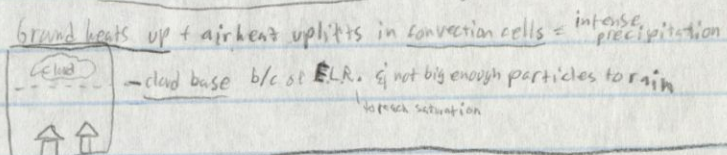 Ground heats up + air heat uplifts in convection cells = intense precipitation
cloud
- cloud base b/c of E.L.R. & not big enough particles to rain
to reach saturation